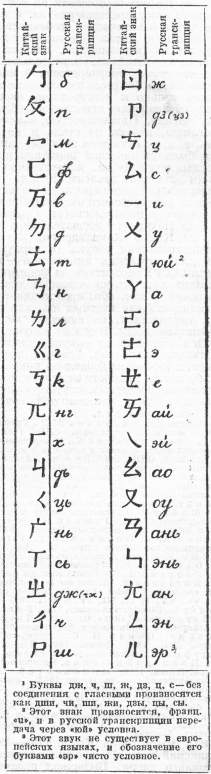 Китай-
ский
знак
Русская
транск-
рипция
Китай-
ский
знак
Русская
транск-
рипция
ㄅ б ㄖ ж
ㄆ п ㄗ дз(цз)
ㄇ м ㄘ ц
ㄈ ф ㄙ с
万 в 一 и
ㄉ д ㄨ у
ㄊ т ㄩ юй²
ㄋ н ㄚ а
ㄌ л ㄛ о
ㄍ г ㄜ э
ㄎ к ㄝ е
兀 нг ㄞ ай
ㄏ х ㄟ эй
ㄐ дь ㄠ ао
ㄑ ць ㄡ оу
广 нь ㄢ ань
ㄒ сь ㄣ энь
ㄓ дж(чж) ㄤ ан
ㄔ ч ㄥ эн
ㄕ ш ㄦ эр³
¹ Буквы дж, ч, ш, ж, дз, ц, с—без
соединения с гласными произносятся
как дши, чи, ши, жи, дзы, цы, сы.
² Этот знак произносится, франц.
«u», и в русской транскрипции пере-
дача через «юй» условна.
³ Этот звук не существует в евро-
пейских языках, и обозначение его
буквами «эр» чисто условное.